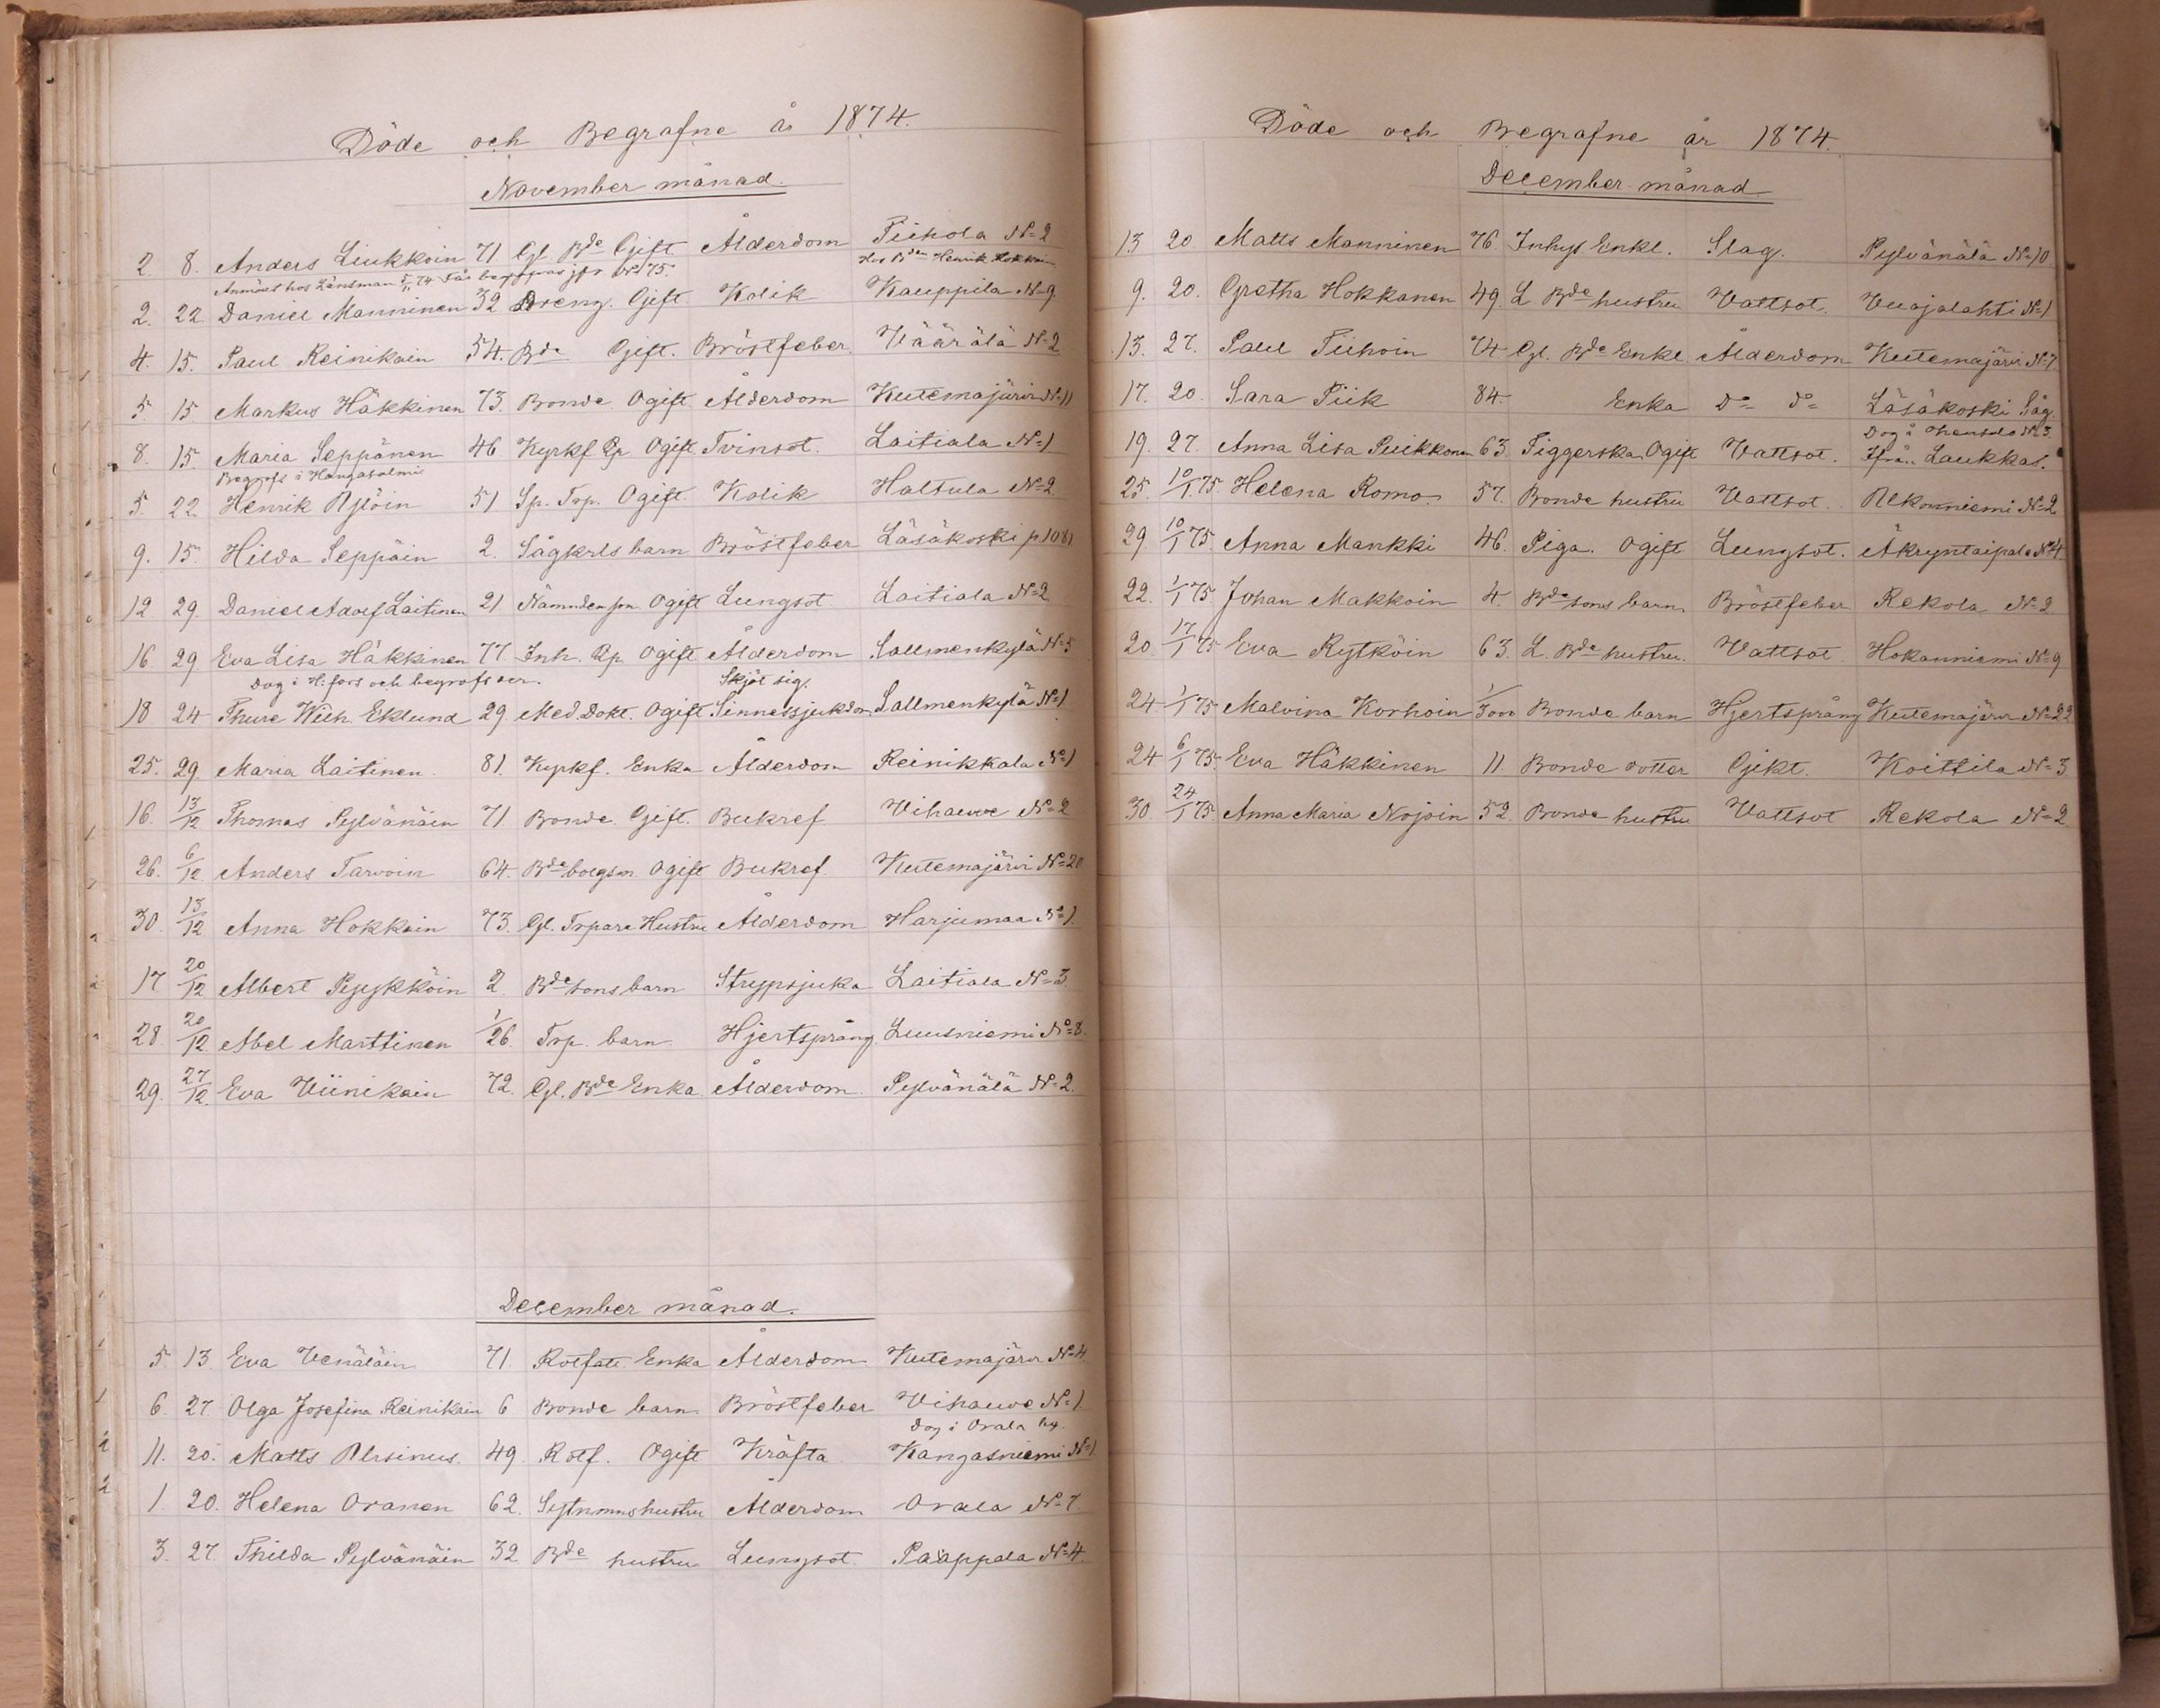 Döde och Begrafne år 1874.
November månad.
2. 8. Anders Liukkoin 71 Gl. Bde Gift. Ålderdom Tiihola No 2
Anmält hos Länsman 5/11 74. Får begrafvas
Hos Bden Henrik Hokkain
2. 22. Daniel Manninen 32 Dreng. Gift Kolik Kauppila No 9
4. 15. Paul Reinikain 54. Bde Gift. Bröstfeber. Väärälä No 2
5. 15 Markus Häkkinen 73. Bonde Ogift Ålderdom Kutemajärvi No 11
8. 15. Maria Seppänen 46 Kyrkf. Qp. Ogift Tvinsot. Laitiala No 1
Begrofs i Hangasalmi
5. 22 Henrik Pylöin 51 Sp. Trp. Ogift. Kolik Haltula No 2
9. 15. Hilda Seppäin 2. Sågkrls barn Bröstfeber Läsäkoski p 1081
12 29. Daniel Adolf Laitinen 21 Nämndem son. Ogift Lungsot Laitiala No 2
16 29 Eva Lisa Häkkinen 77 Inh. Qp. Ogift Ålderdom Sallmenkylä No 5
Dog i H:fors och begrofs der. Skjöt sig.
18 24 Thure Wilh. Eklund 29. Med. Dokt. Ogift Sinnessjukdom Sallmenkylä No 1
25. 29. Maria Laitinen 81. Kyrkf. Enka Ålderdom Reinikkala No 1
16. 13/12 Thomas Pylvänäin 71 Bonde Gift. Bukref Vihauvu No 2
26. 6/12 Anders Tarvoin 64. Bde bolgsm. Ogift Bukref. Kutemajärvi No 20
30. 13/12 Anna Hokkain 73. Gl. Trpare Hustru Ålderdom Harjumaa No 1
17 20/12 Albert Pyykköin 2. Bde sons barn Strypsjuka Laitiala No 3
28. 20/12 Abel Marttinen 1/26. Trp. barn. Hjertsprång Luusniemi No 8.
29. 27/12. Eva Viinikain 72. Gl. Bde Enka Ålderdom. Pylvänälä No 2.
December månad.
5 13. Eva Venäläin 71. Rotfatt. Enka Ålderdom Kutemajärvi No 4
6. 27. Olga Josefina Reinikain 6 Bonde barn. Bröstfeber Vihauvu No 1
Dog i Orala by.
11. 20. Matts Alrsinus. 49. Rotf. Ogift Kräfta Kangasniemi No 1
1. 20. Helena Oranen 62. Sytnmns hustru Ålderdom Orala No 7
3. 27. Thilda Pylvänäin 32 Bde hustru Lungsot. Paappala No 4.
Döde och Begrafne år 1874.
December månad
13 20. Matts Manninen 76. Inhys Enkl. Slag. Pylvänälä No 10
9. 20. Gretha Hokkanen 49. L Bde hustru Vattsot. Vuojalahti No 1
13. 27. Paul Tiihoin 74 Gl. Bde Enkl. Ålderdom Kutemajärvi No 7
17. 20. Sara Piik 84. Enka Do do Läsäkoski Såg.
19. 27. Anna Lisa Puikkonen 63. Tiggerska Ogift Vattsot. Ifrån Laukkas.
25. 10/1.75. Helena Romo 57. Bonde hustru Vattsot. Alkonniemi No 2
29. 10/1 75. Anna Mankki 46. Piga. Ogift Lungsot. Äkryntaipale No 4
22. 1/1 75. Johan Makkoin 4. Bde sons barn Bröstfeber Rekola No 2
20. 17/1 75 Eva Rytköin 63. L. Bde hustru. Vattsot Hokanniemi No 9
24 1/1 75 Malvina Korhoin Bonde barn Hjertsprång Kutemajärvi No 22
24 6/1 75. Eva Häkkinen 11. Bonde dotter Gikt. Koittila No 3
30. 24/1 75. Anna Maria Nojoin 52 Bonde hustru Vattsot Rekola No 2